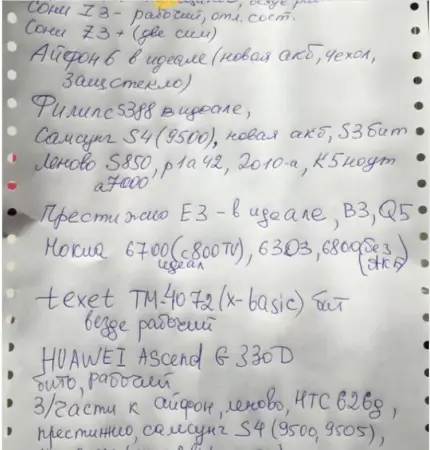 Сони Z3 - рабочий, отл. сост.
Сони Z3 + (две сим)
Айфон 6 в идеале (новая акб, чехол,
защ стекло)
Филипс S388 в идеале,
Самсунг S4 (9500), новая акб, S3 бит
Леново S850, p1a42, 2010-а, K5 ноут
a7000
Престижио E3 - в идеале, B3, Q5
Нокиа 6700 (c800TV), 6303, 6800 (без
идеал акб)
texet TM-4072 (x-basic) бит
везде рабочий
HUAWEI Ascend G 330D
бито, рабочий
З/части к айфон, леново, HTC 626g,
престижио, самсунг S4 (9500, 9505),